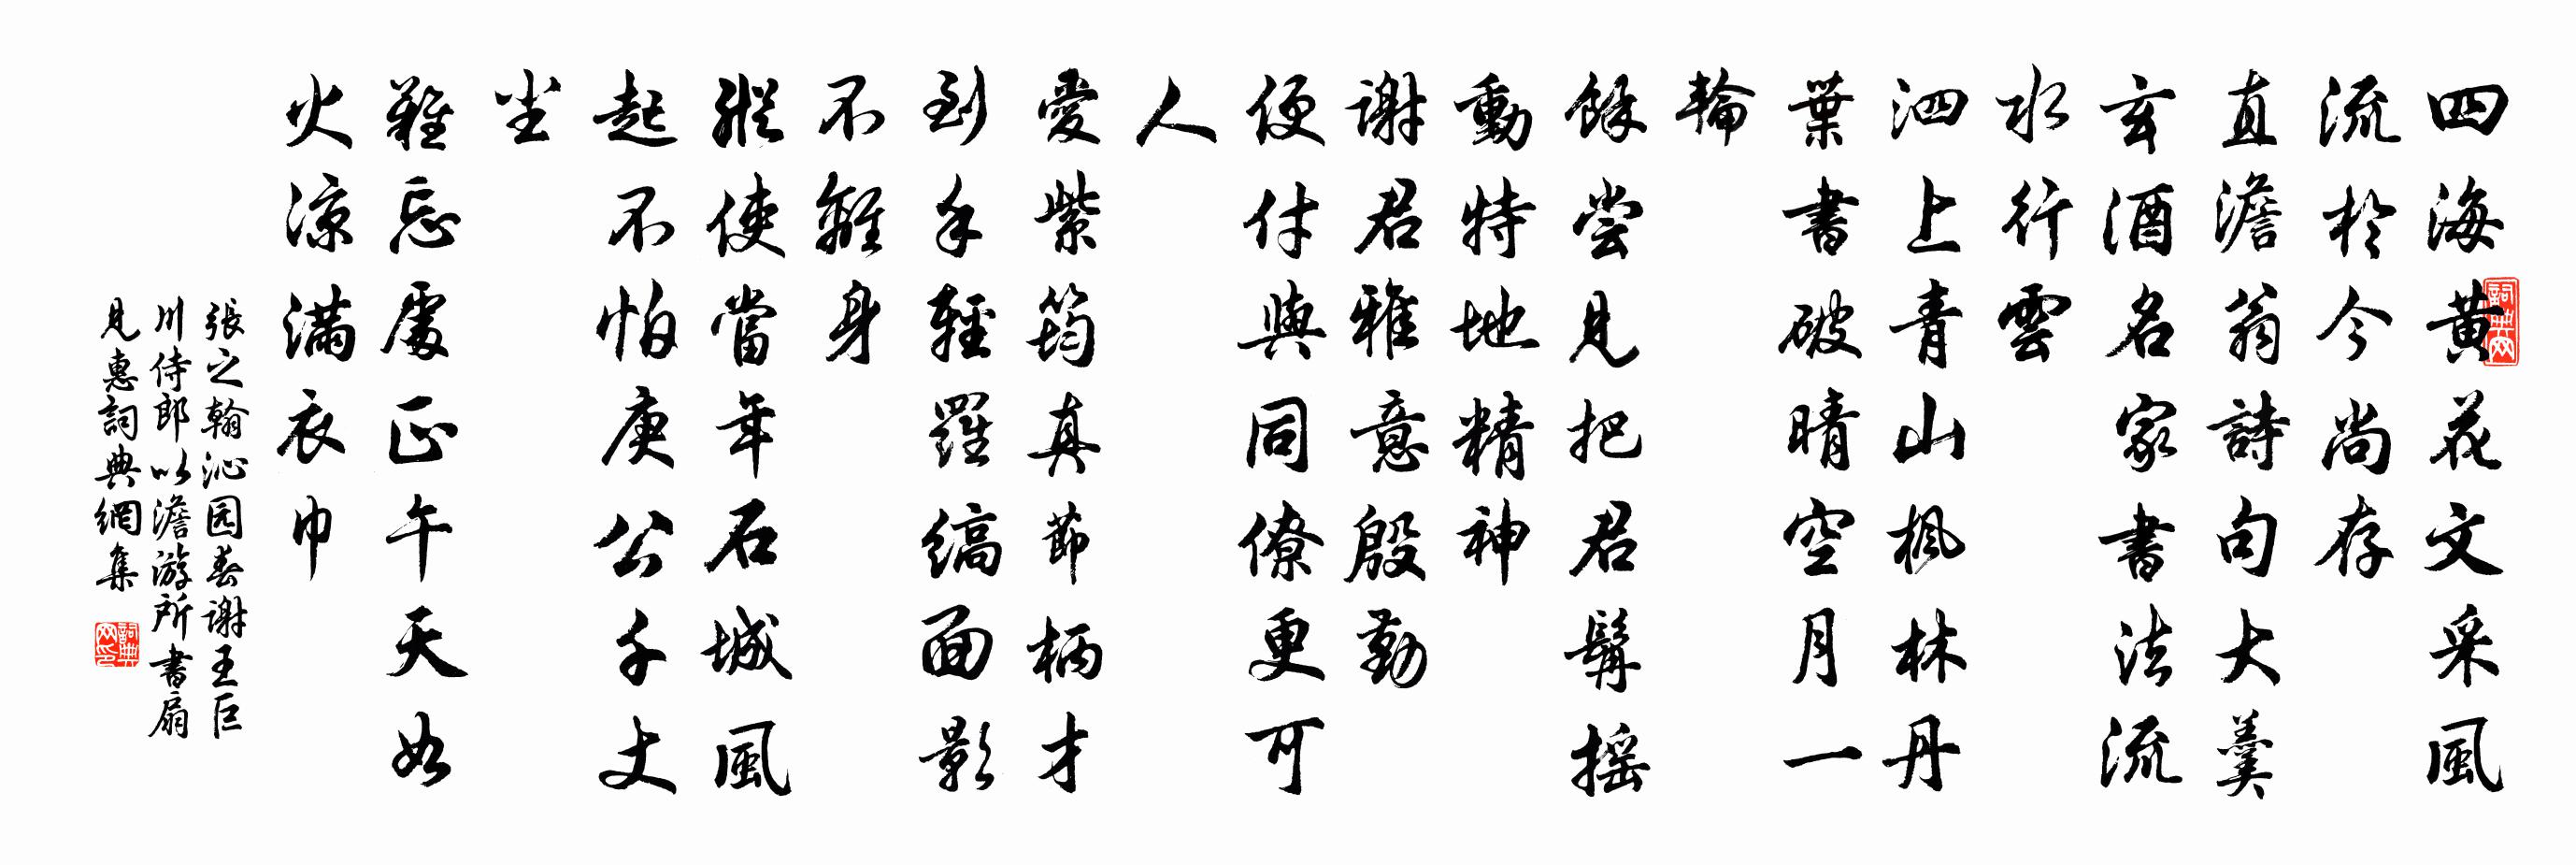 四海黄花文采風
流於今尚存
直澹翁詩句大羹
玄酒名家書法流
水行雲
泗上青山楓林丹
葉書破晴空月一
輪
餘嘗見把君髯摇
動特地精神
謝君雅意殷勤
便付與同僚更可
人
愛紫筠真節柄才
到手輕羅縞面影
不離身
縱使當年石城風
起不怕庾公千丈
尘
難忘處正午天如
火涼滿衣巾
張之翰沁园春謝王巨
川侍郎以澹游所書扇
見惠詞典網集
詞典网
詞典网